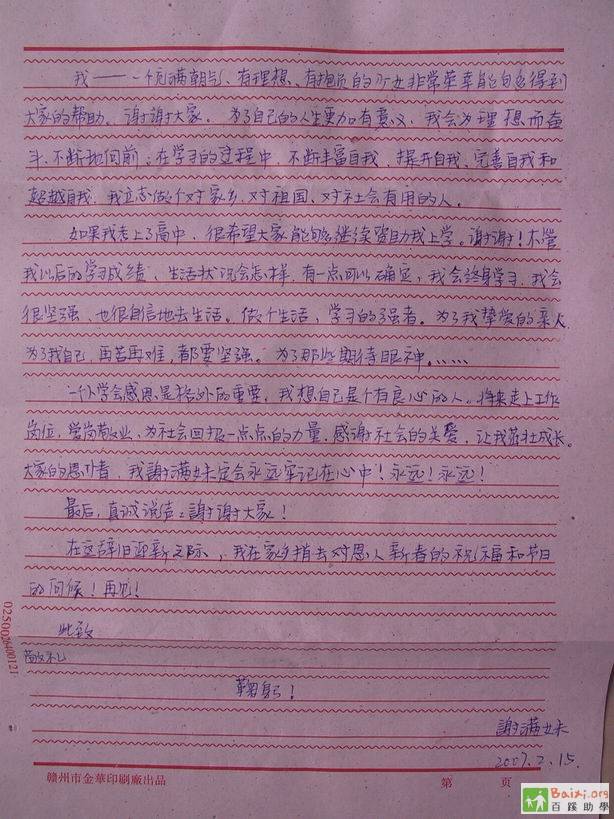 我——一个充满朝气、有理想、有抱负的少女非常荣幸能够得到
大家的帮助。谢谢大家。为了自己的人生更加有意义，我会为理想而奋
斗，不断地向前；在学习的过程中，不断丰富自我、提升自我、完善自我和
超越自我，我立志做个对家乡、对祖国、对社会有用的人。
如果我考上了高中，很希望大家能够继续资助我上学。谢谢！不管
我以后的学习成绩、生活状况会怎样，有一点可以确定，我会终身学习，我会
很坚强、也很自信地去生活。做个生活，学习的强者。为了我挚爱的亲人，
为了我自己，再苦再难，都要坚强。为了那些期待眼神……
一个人学会感恩是格外的重要，我想自己是个有良心的人。将来走上工作
岗位，爱岗敬业，为社会回报一点点的力量，感谢社会的关爱，让我茁壮成长。
大家的恩情，我謝满妹定会永远牢记在心中！永远！永远！
最后，真诚说声：謝謝大家！
在这辞旧迎新之际，我在家乡捎去对恩人新春的祝福和节日
的问候！再见！
此致
敬礼
鞠躬！
謝满妹
2007.2.15.
0250026400121
赣州市金華印刷廠出品
第 页
Baixi.org
百蹊助學